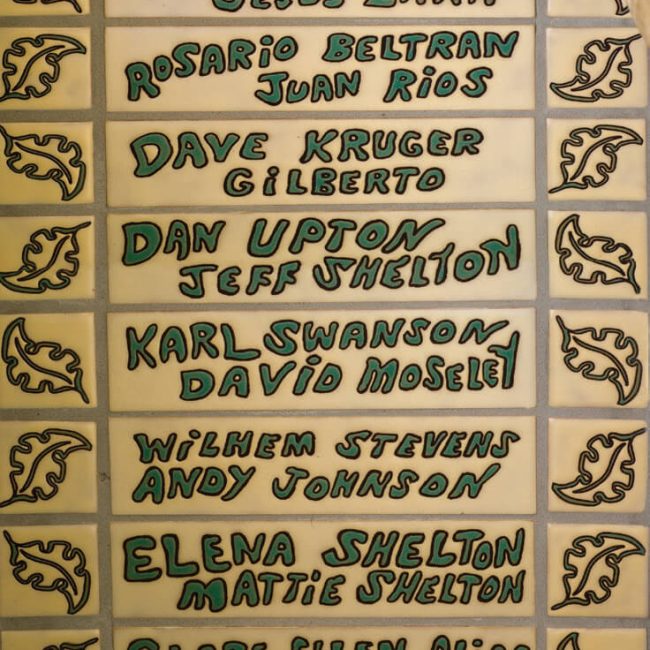 ROSARiO BELTRAN
JUAN RiOS
DAVE KRUGER
GiLBERTO
DAN UPTON
JEFF SHELTON
KARL SWANSON
DAViD MOSELEY
WiLHEM STEVENS
ANDY JOHNSON
ELENA SHELTON
MATTiE SHELTON